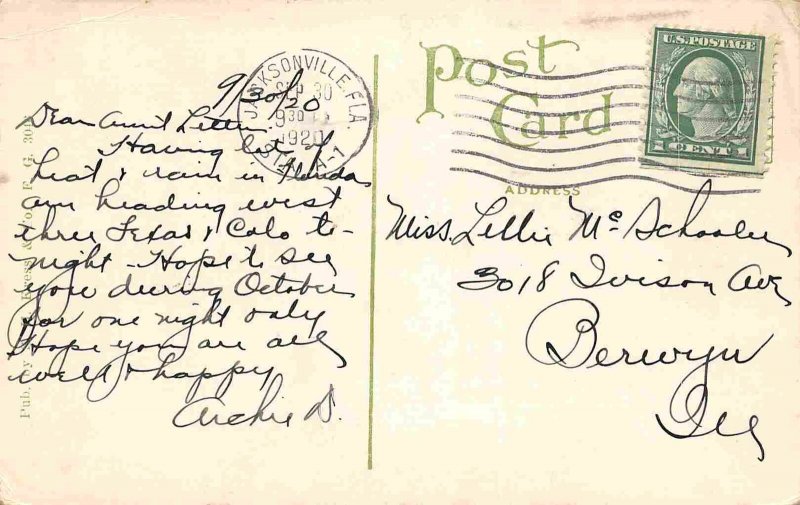 9/30/20
Dear Aunt Lellie
Having lots of
heat & rain in Florida
am heading west
three Texas & Colo to-
night - Hope to see
you during October
for one night only
Hope you are all
well & happy
Archie D.
JACKSONVILLE, FLA.
SEP 30
930
1920
Post
Card
ADDRESS
U.S. POSTAGE
1 CENT 1
Miss. Lellie Mc Schooler
3018 Ivison Ave
Berwyn
Ill
Pub. by